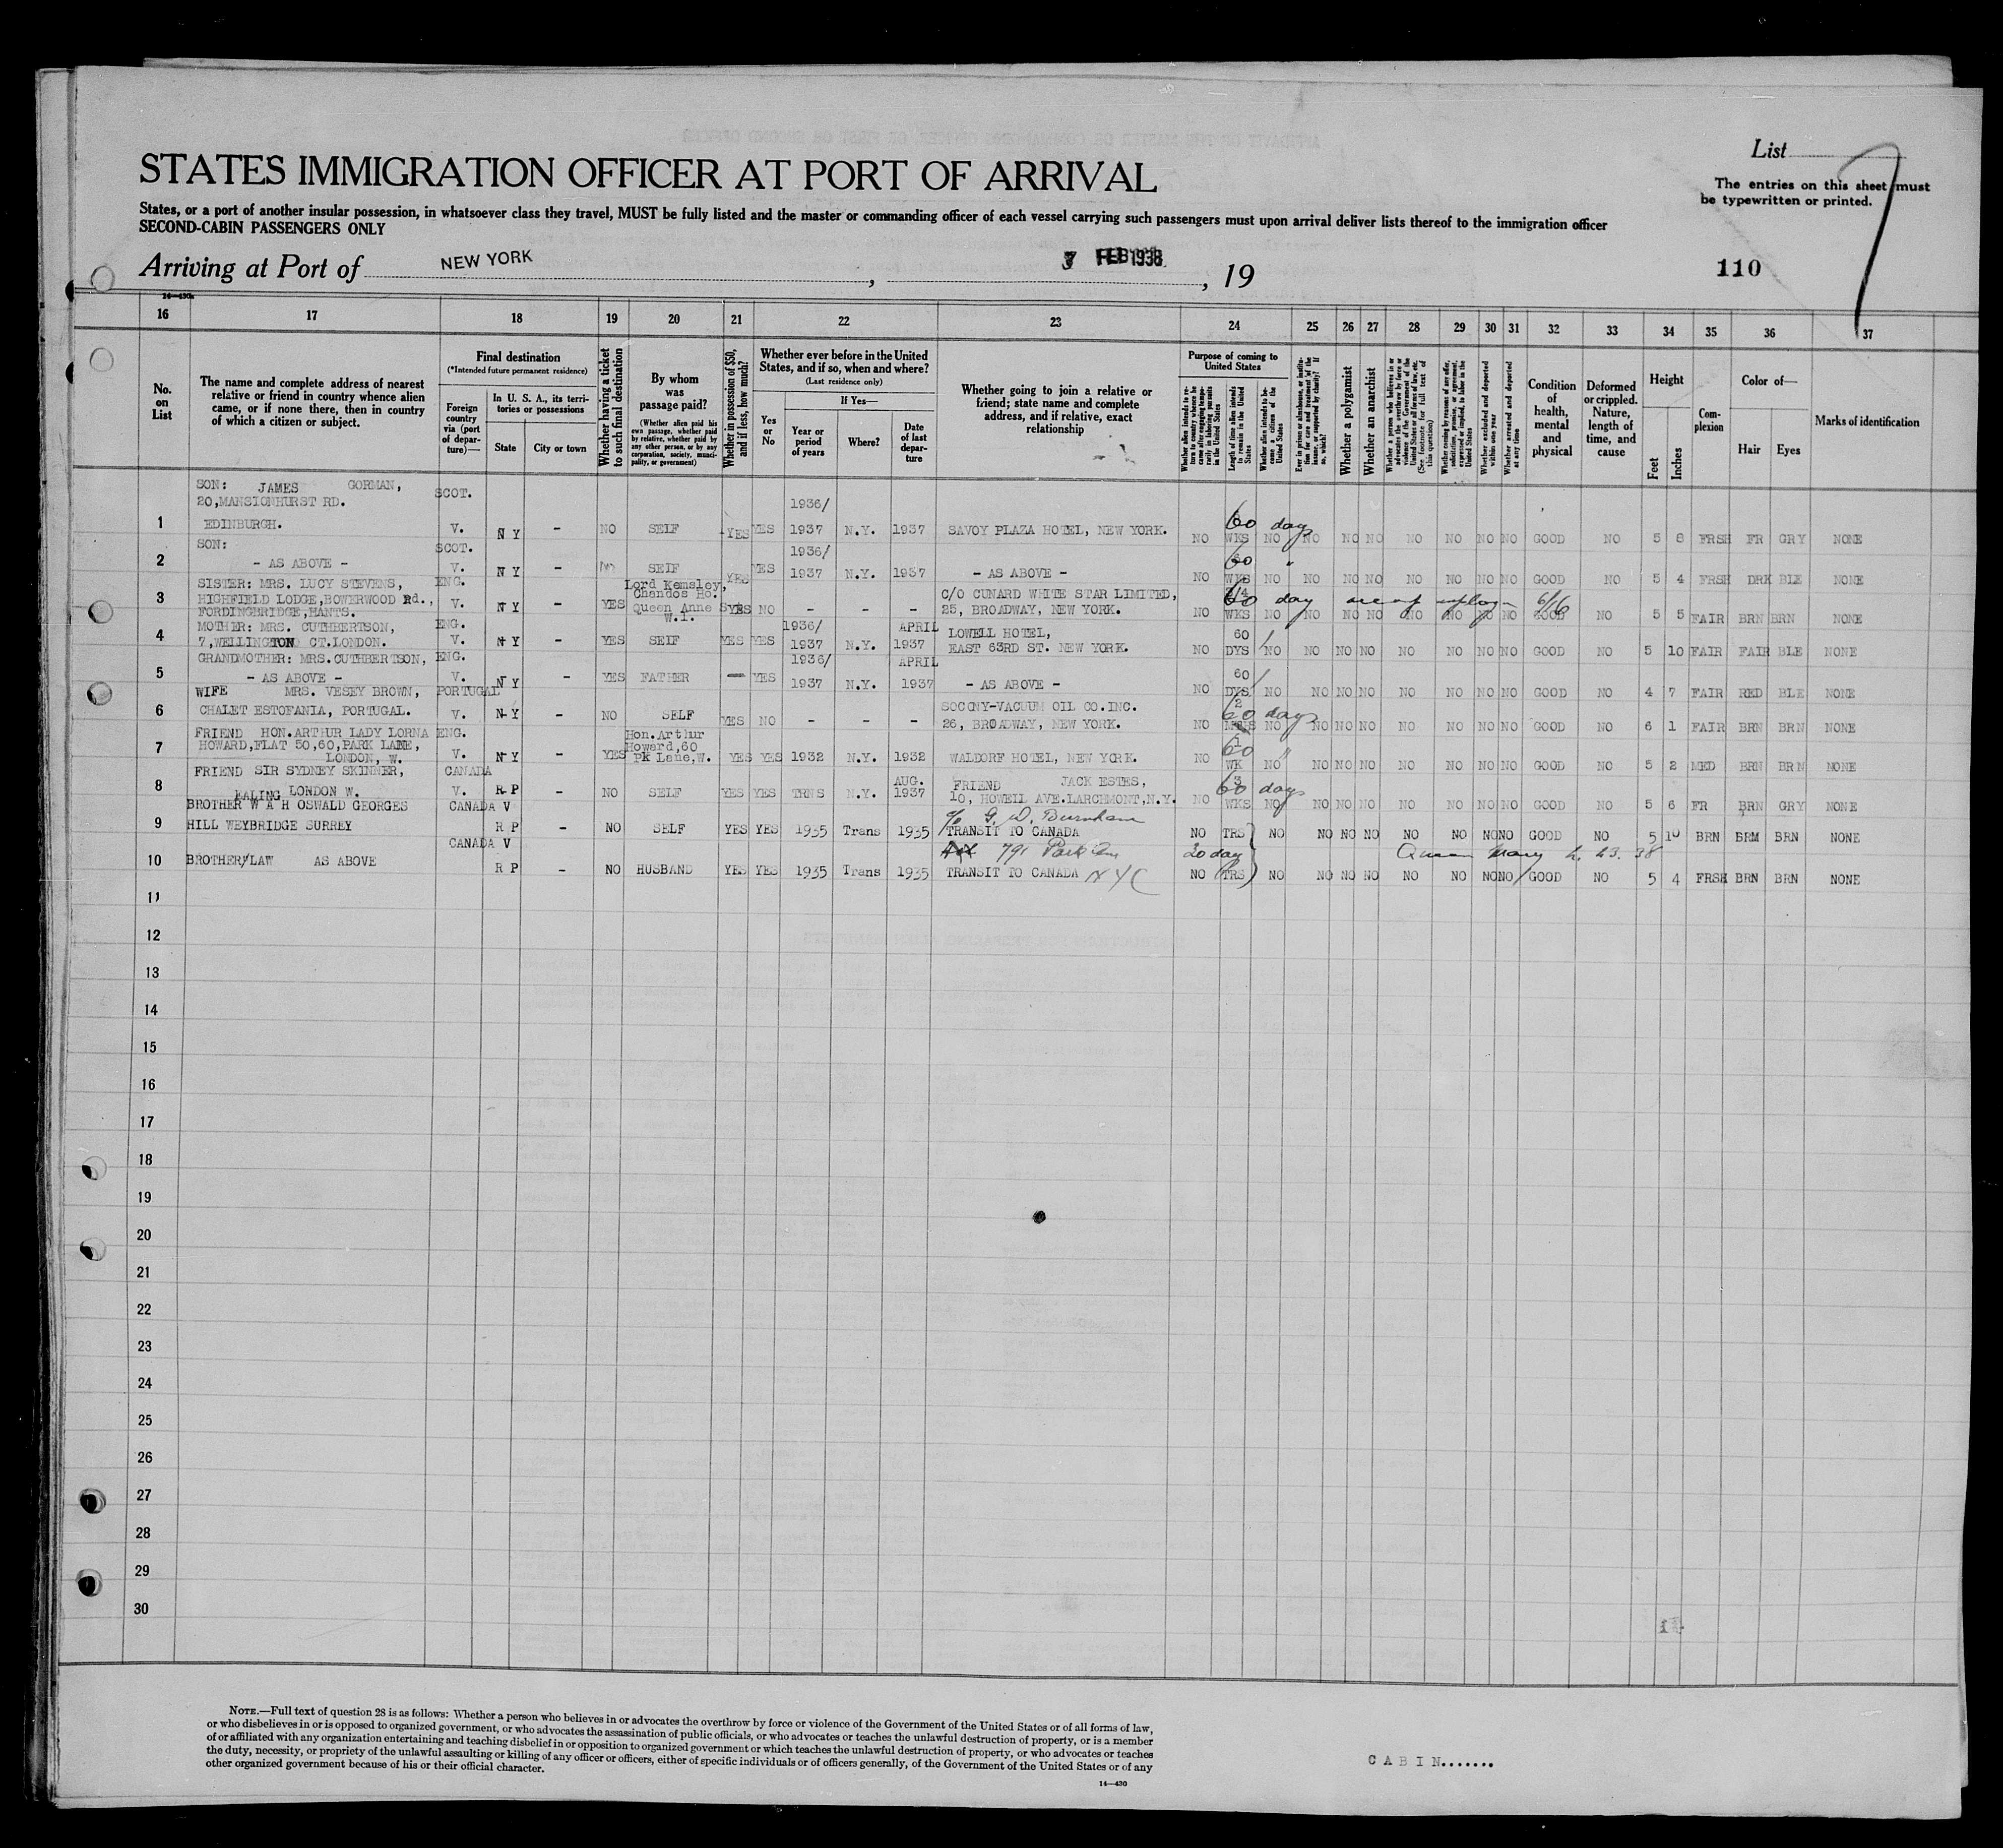 STATES IMMIGRATION OFFICER AT PORT OF ARRIVAL
List
7
The entries on this sheet must
be typewritten or printed.
States, or a port of another insular possession, in whatsoever class they travel, MUST be fully listed and the master or commanding officer of each vessel carrying such passengers must upon arrival deliver lists thereof to the immigration officer
SECOND-CABIN PASSENGERS ONLY
Arriving at Port of NEW YORK, 3 FEB 1938, 19
110
16 17 18 19 20 21 22 23 24 25 26 27 28 29 30 31 32 33 34 35 36 37
No. on List
The name and complete address of nearest relative or friend in country whence alien came, or if none there, then in country of which a citizen or subject.
Final destination
(*Intended future permanent residence)
Foreign country via (port of departure)—
In U. S. A., its territories or possessions
State
City or town
Whether having a ticket to such final destination
By whom was passage paid?
(Whether alien paid his own passage, whether paid by relative, whether paid by any other person, or by any corporation, society, municipality, or government)
Whether in possession of $50, and if less, how much?
Whether ever before in the United States, and if so, when and where?
(Last residence only)
Yes or No
If Yes—
Year or period of years
Where?
Date of last departure
Whether going to join a relative or friend; state name and complete address, and if relative, exact relationship
Purpose of coming to United States
Length of time alien intends to remain in the United States
Whether alien intends to become a citizen of the United States
Whether a polygamist
Whether an anarchist
Whether excluded and deported within one year
Whether arrested and deported at any time
Condition of health, mental and physical
Deformed or crippled. Nature, length of time, and cause
Height
Feet
Inches
Complexion
Color of—
Hair
Eyes
Marks of identification
SON: JAMES GORMAN, SCOT.
20, MANSIONHURST RD. 1936/
1 EDINBURGH. V. N Y – NO SELF YES YES 1937 N.Y. 1937 SAVOY PLAZA HOTEL, NEW YORK. NO 60 days WKS NO NO NO NO NO NO NO NO GOOD NO 5 8 FRSH FR GRY NONE
SON: SCOT. 1936/
2 – AS ABOVE – V. N Y – NO SELF YES YES 1937 N.Y. 1937 – AS ABOVE – NO 60 " WKS NO NO NO NO NO NO NO NO GOOD NO 5 4 FRSH DRK BLE NONE
SISTER: MRS. LUCY STEVENS, ENG. Lord Kemsley, C/O CUNARD WHITE STAR LIMITED,
3 HIGHFIELD LODGE, BOWERWOOD Rd., V. N Y – YES Chandos Ho. Queen Anne S W.1. YES NO – – – 25, BROADWAY, NEW YORK. NO 60 day WKS NO NO NO NO NO NO NO NO GOOD NO 5 5 FAIR BRN BRN NONE
FORDINGBRIDGE, HANTS.
MOTHER: MRS. CUTHBERTSON, ENG. 1936/ APRIL LOWELL HOTEL, 60
4 7, WELLINGTON CT. LONDON. V. N Y – YES SELF YES YES 1937 N.Y. 1937 EAST 63RD ST. NEW YORK. NO DYS NO NO NO NO NO NO NO NO GOOD NO 5 10 FAIR FAIR BLE NONE
GRANDMOTHER: MRS. CUTHBERTSON, ENG. 1936/ APRIL 60
5 – AS ABOVE – V. N Y – YES FATHER — YES 1937 N.Y. 1937 – AS ABOVE – NO DYS NO NO NO NO NO NO NO NO GOOD NO 4 7 FAIR RED BLE NONE
WIFE MRS. VESEY BROWN, PORTUGAL SOCONY-VACUUM OIL CO. INC. 2
6 CHALET ESTOFANIA, PORTUGAL. V. N Y – NO SELF YES NO – – – 26, BROADWAY, NEW YORK. NO 60 days NO NO NO NO NO NO NO NO GOOD NO 6 1 FAIR BRN BRN NONE
FRIEND HON. ARTHUR LADY LORNA ENG. Hon. Arthur
7 HOWARD, FLAT 50, 60, PARK LANE, V. N Y – YES Howard, 60 Pk Lane, W. YES YES 1932 N.Y. 1932 WALDORF HOTEL, NEW YORK. NO 60 " WK NO NO NO NO NO NO NO NO GOOD NO 5 2 MED BRN BRN NONE
LONDON, W.
FRIEND SIR SYDNEY SKINNER, CANADA AUG. FRIEND JACK ESTES, 3
8 EALING LONDON W. V. R P – NO SELF YES YES TRNS N.Y. 1937 10, HOWELL AVE. LARCHMONT, N.Y. NO 60 days WKS NO NO NO NO NO NO NO NO GOOD NO 5 6 FR BRN GRY NONE
BROTHER W A H OSWALD GEORGES CANADA V c/o G. W. Burnham
9 HILL WEYBRIDGE SURREY R P – NO SELF YES YES 1935 Trans 1935 TRANSIT TO CANADA NO TRS NO NO NO NO NO NO NO NO GOOD NO 5 10 BRN BRM BRN NONE
CANADA V 791 Park Ave 20 day Queen Mary 2. 23. 38
10 BROTHER/LAW AS ABOVE R P – NO HUSBAND YES YES 1935 Trans 1935 TRANSIT TO CANADA N Y C NO TRS NO NO NO NO NO NO NO NO GOOD NO 5 4 FRSH BRN BRN NONE
11
12
13
14
15
16
17
18
19
20
21
22
23
24
25
26
27
28
29
30
NOTE.—Full text of question 28 is as follows: Whether a person who believes in or advocates the overthrow by force or violence of the Government of the United States or of all forms of law,
or who disbelieves in or is opposed to organized government, or who advocates the assassination of public officials, or who advocates or teaches the unlawful destruction of property, or is a member
of or affiliated with any organization entertaining and teaching disbelief in or opposition to organized government or which teaches the unlawful destruction of property, or who advocates or teaches
the duty, necessity, or propriety of the unlawful assaulting or killing of any officer or officers, either of specific individuals or of officers generally, of the Government of the United States or of any
other organized government because of his or their official character.
14—430
C A B I N.......